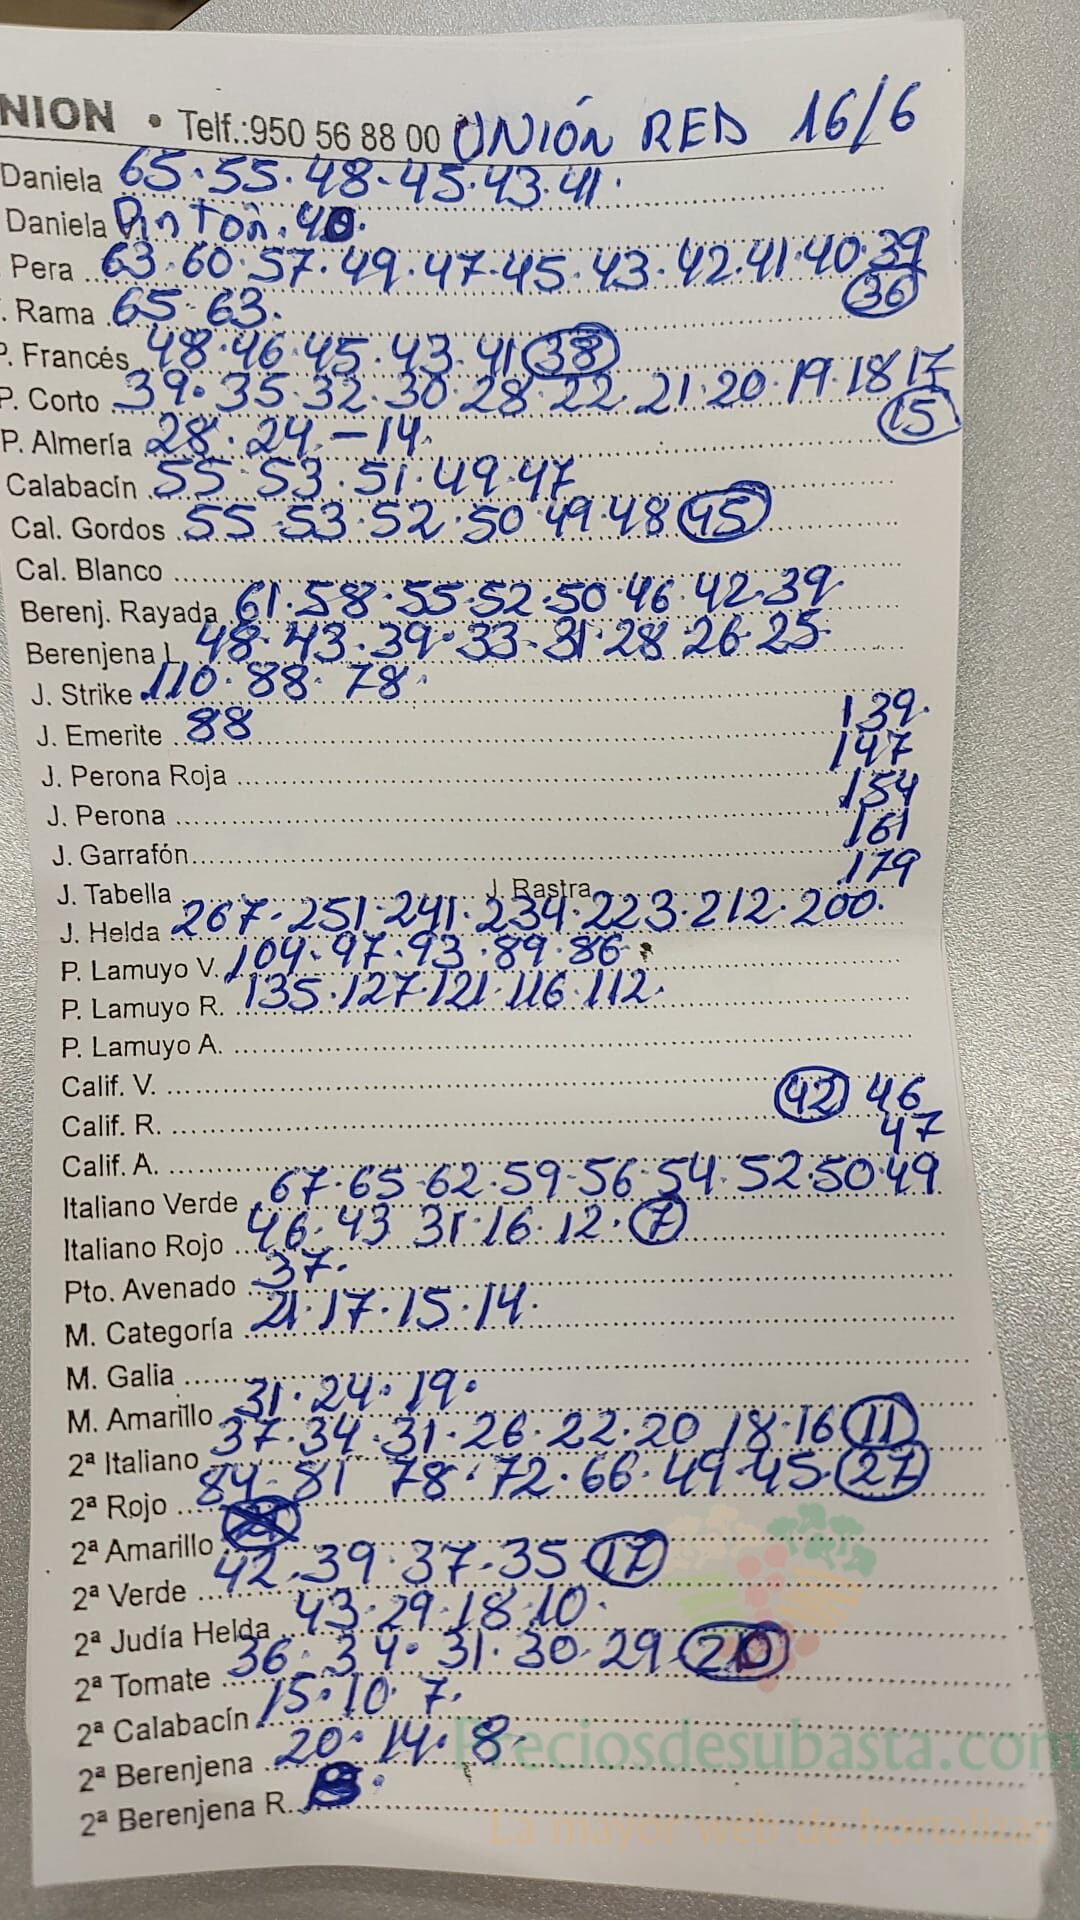 NION • Telf.:950 56 88 00 UNIÓN RED 16/6
Daniela 65·55·48·45·43·41·
Daniela Pinton·40·
Pera 63·60·57·49·47·45·43·42·41·40·39
36
. Rama 65·63·
P. Francés 48·46·45·43·41 38
P. Corto 39·35·32·30·28·22·21·20·19·18 17
15
P. Almería 28·24·-14·
Calabacín 55·53·51·49·47
Cal. Gordos 55·53·52·50·49·48 45
Cal. Blanco
Berenj. Rayada 61·58·55·52·50·46·42·39·
Berenjena L 48·43·39·33·31·28·26·25·
J. Strike 110·88·78·
J. Emerite 88 139·
147
J. Perona Roja
154
J. Perona
161
J. Garrafón
179
J. Tabella J. Rastra
J. Helda 267·251·241·234·223·212·200·
P. Lamuyo V. 104·97·93·89·86
P. Lamuyo R. 135·127·121·116·112·
P. Lamuyo A.
Calif. V. 42 46
Calif. R. 47
Calif. A.
Italiano Verde 67·65·62·59·56·54·52·50·49
Italiano Rojo 46·43 31·16·12·7
Pto. Avenado 37·
M. Categoría 21·17·15·14·
M. Galia
M. Amarillo 31·24·19·
2ª Italiano 37·34·31·26·22·20 18·16 11
2ª Rojo 84·81 78·72·66·49·45·27
2ª Amarillo
2ª Verde 42·39·37·35 17
2ª Judía Helda 43·29·18·10·
2ª Tomate 36·34·31·30·29 20
2ª Calabacín 15·10·7·
2ª Berenjena 20·14·8·
2ª Berenjena R.
Preciosdesubasta.com
La mayor web de hortalizas